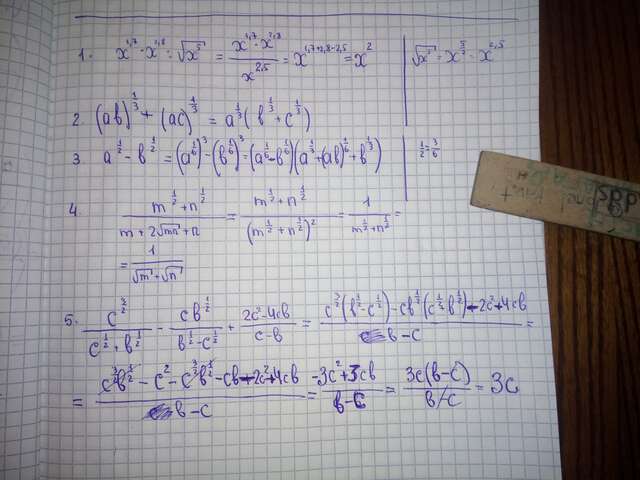 1. x^1,7 · x^2,8 : √x^5 = x^1,7 · x^2,8 / x^2,5 = x^1,7+2,8-2,5 = x^2 | √x^5 = x^5/2 = x^2,5
2 (ab)^1/3 + (ac)^1/3 = a^1/3 (b^1/3 + c^1/3)
3 a^1/2 - b^1/2 = (a^1/6)^3 - (b^1/6)^3 = (a^1/6 - b^1/6)(a^1/3 + (ab)^1/6 + b^1/3) | 1/2 = 3/6
4. m^1/2 + n^1/2 / m + 2√mn + n = m^1/2 + n^1/2 / (m^1/2 + n^1/2)^2 = 1 / m^1/2 + n^1/2 =
= 1 / √m + √n
5. c^3/2 / c^1/2 + b^1/2 - c b^1/2 / b^1/2 - c^1/2 + 2c^2 - 4cb / c - b = c^3/2 (b^1/2 - c^1/2) - cb^1/2 (c^1/2 + b^1/2) - 2c^2 + 4cb / b - c =
= c^3/2 b^1/2 - c^2 - c^3/2 b^1/2 - cb - 2c^2 + 4cb / b - c = -3c^2 + 3cb / b - c = 3c(b - c) / b - c = 3c